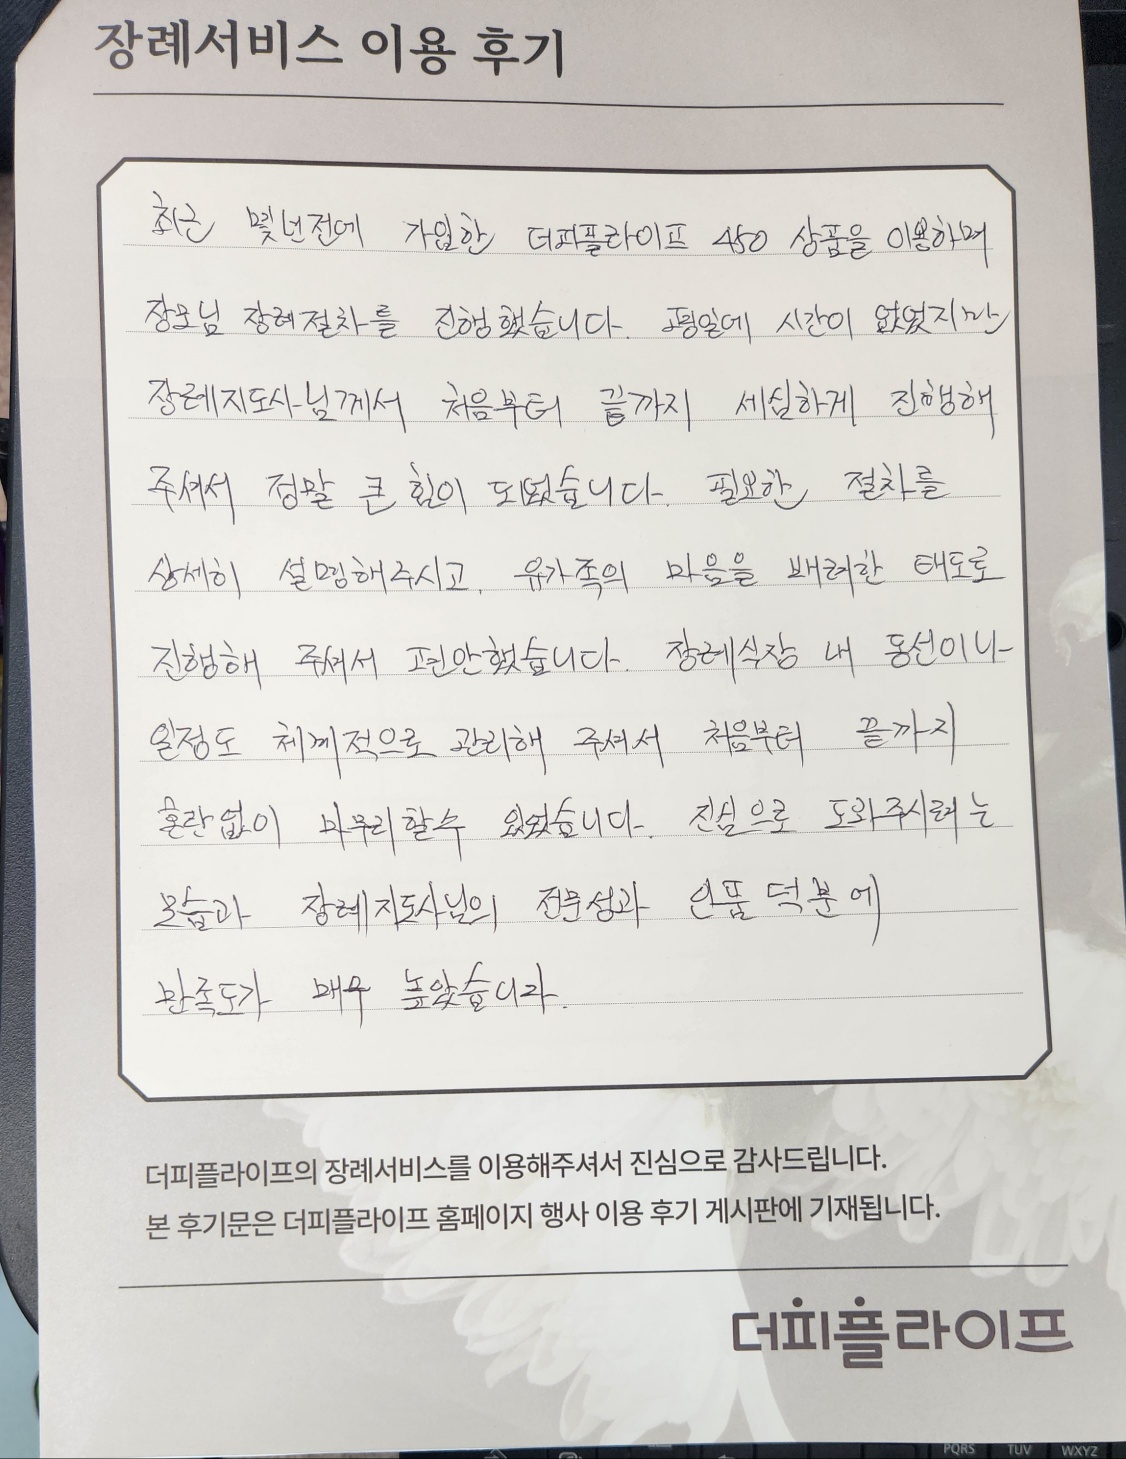 장례서비스 이용 후기
최근 몇년전에 가입한 더피플라이프 450 상품을 이용하며
장모님 장례절차를 진행했습니다. 평일에 시간이 없었지만
장례지도사님께서 처음부터 끝까지 세심하게 진행해
주셔서 정말 큰 힘이 되었습니다. 필요한 절차를
상세히 설명해주시고, 유가족의 마음을 배려한 태도로
진행해 주셔서 편안했습니다. 장례식장 내 동선이나
일정도 체계적으로 관리해 주셔서 처음부터 끝까지
혼란없이 마무리할수 있었습니다. 진심으로 도와주시려는
모습과 장례지도사님의 전문성과 인품 덕분에
만족도가 매우 높았습니다.
더피플라이프의 장례서비스를 이용해주셔서 진심으로 감사드립니다.
본 후기문은 더피플라이프 홈페이지 행사 이용 후기 게시판에 기재됩니다.
더피플라이프
PQRS TUV WXYZ